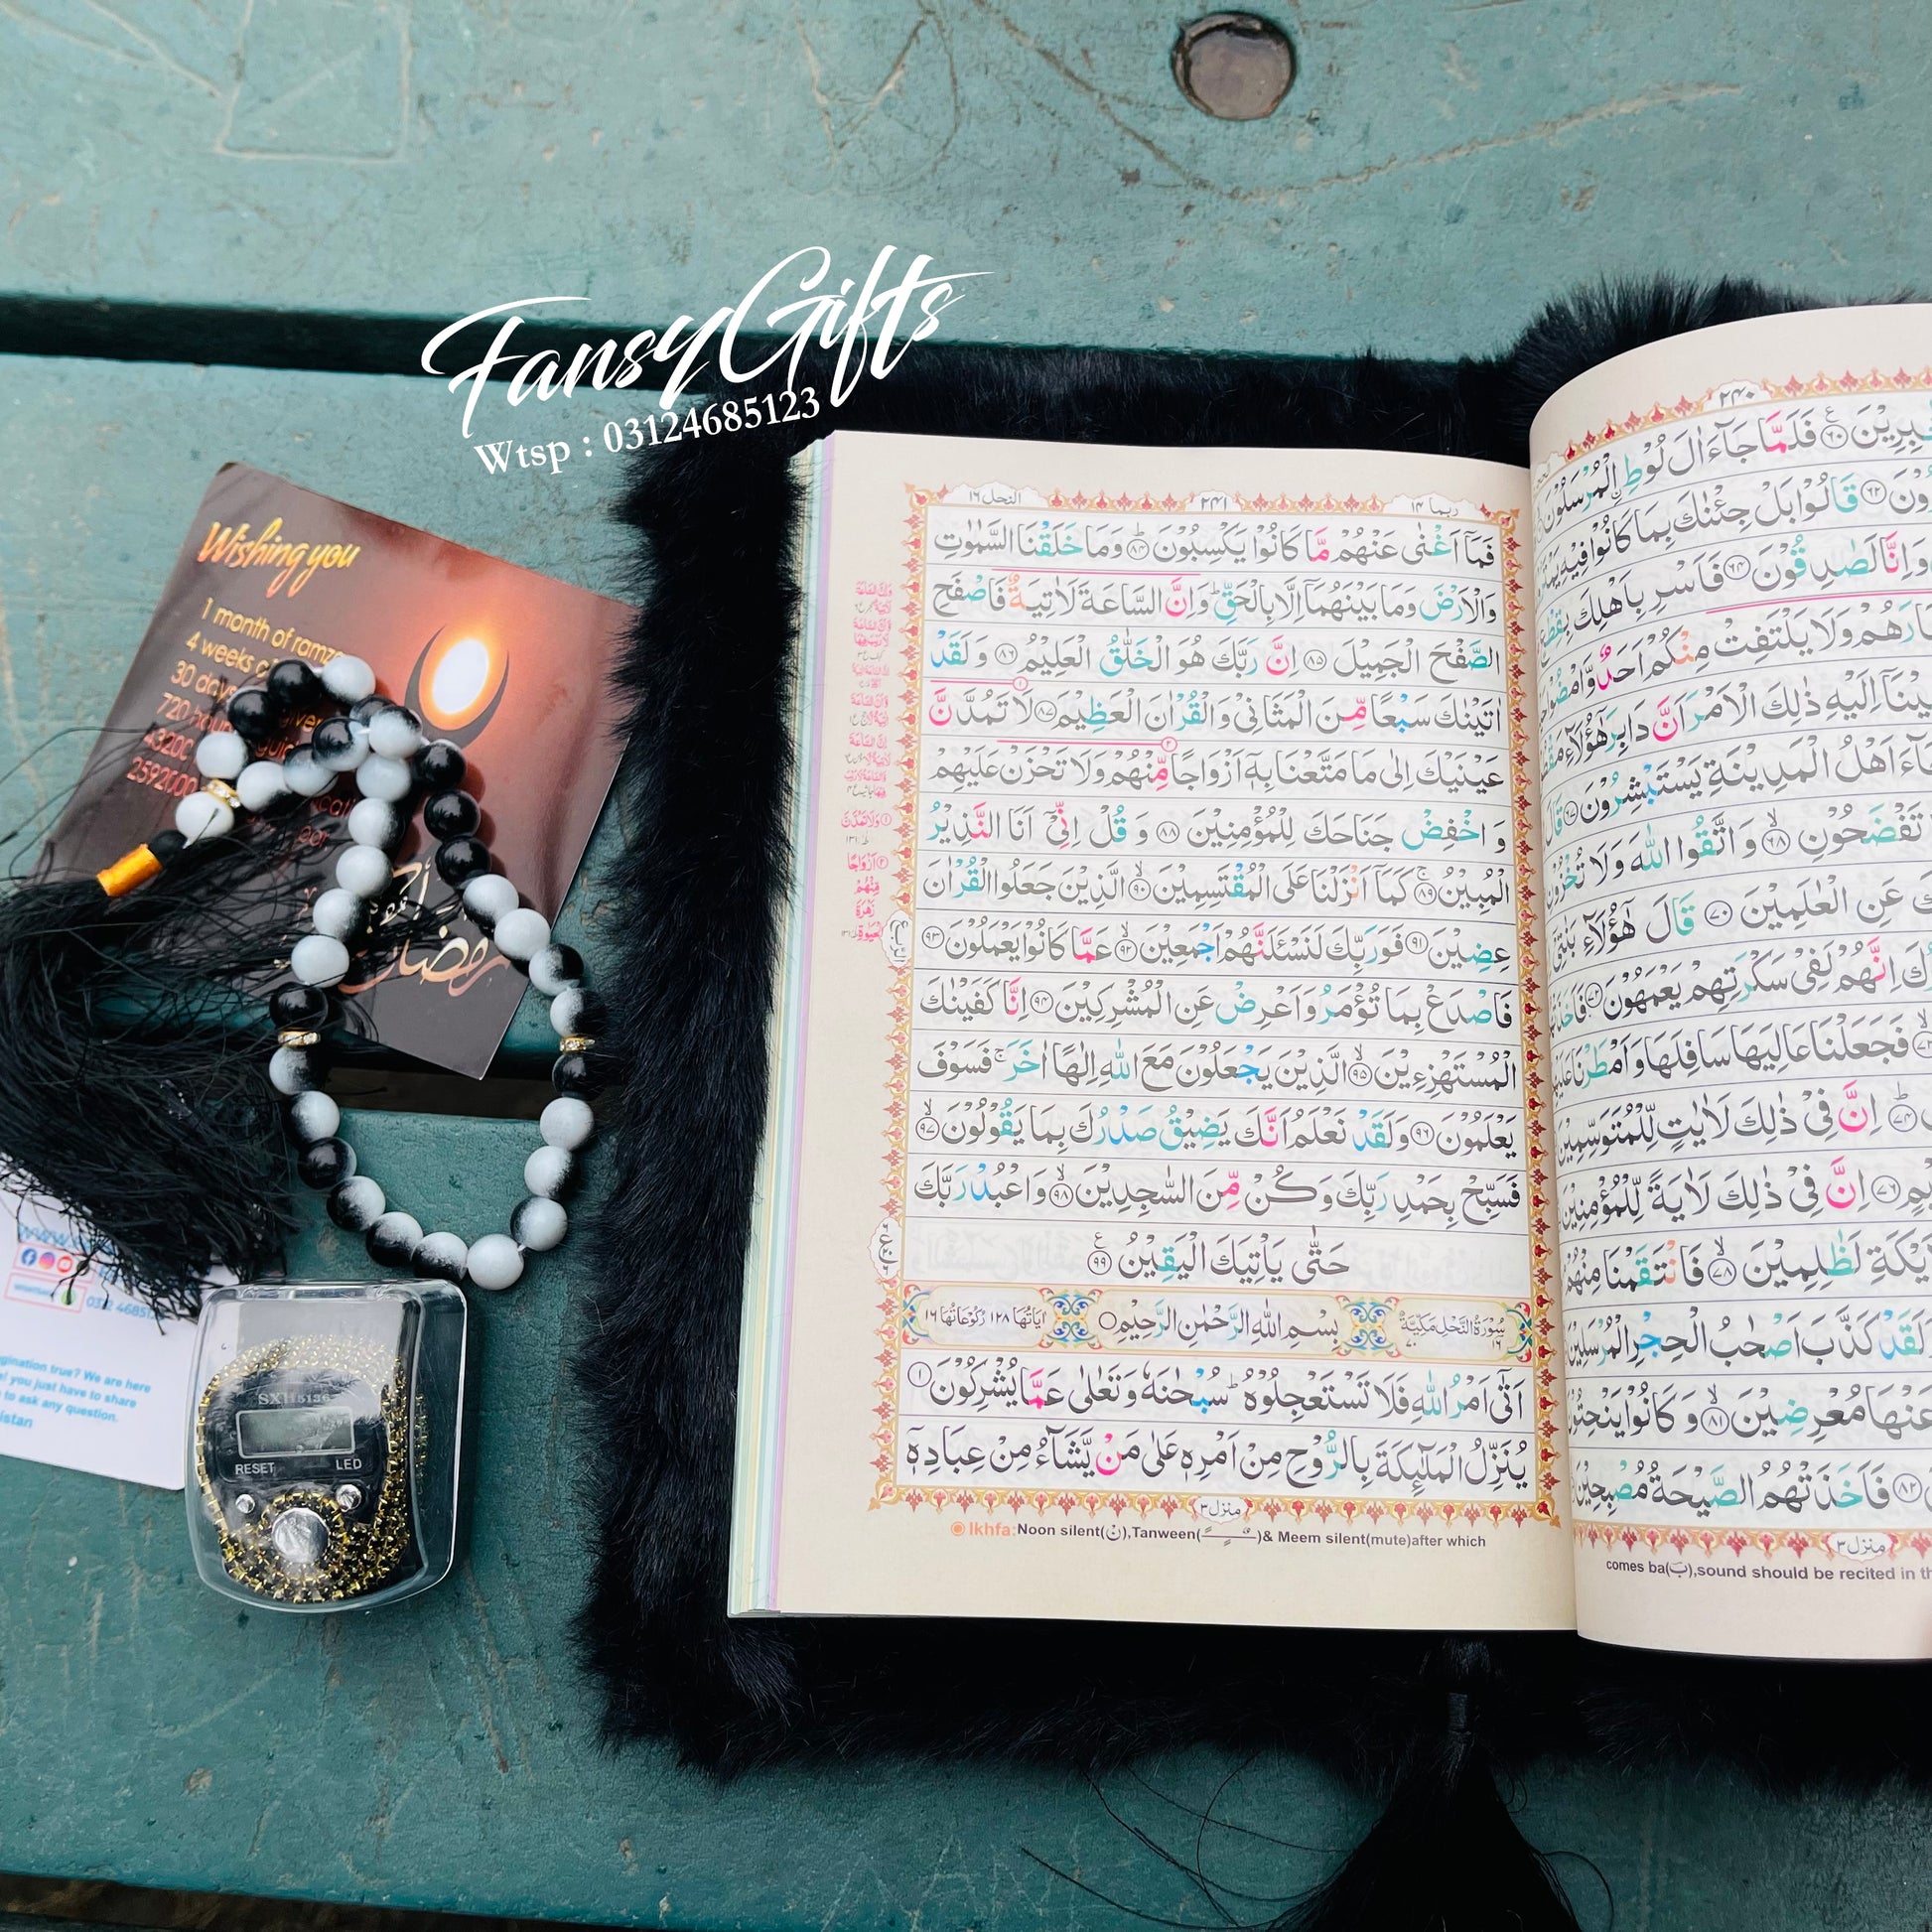 FansyGifts
Wtsp : 03124685123
Wishing you
1 month of
4 weeks
30 days
720
43200
2592000
رمضان
SXH5136
RESET LED
to ask any question.
النحل ١٦ ٢٤١ ربما ١٤
فَمَاۤ اَغْنٰى عَنْهُمْ مَّا كَانُوْا يَكْسِبُوْنَ ﴿۸۴﴾ وَمَا خَلَقْنَا السَّمٰوٰتِ
وَالْاَرْضَ وَمَا بَيْنَهُمَاۤ اِلَّا بِالْحَقِّ ؕ وَاِنَّ السَّاعَةَ لَاٰتِيَةٌ فَاصْفَحِ
الصَّفْحَ الْجَمِيْلَ ﴿۸۵﴾ اِنَّ رَبَّكَ هُوَ الْخَلّٰقُ الْعَلِيْمُ ﴿۸۶﴾ وَلَقَدْ
اٰتَيْنٰكَ سَبْعًا مِّنَ الْمَثَانِيْ وَالْقُرْاٰنَ الْعَظِيْمَ ﴿۸۷﴾ لَا تَمُدَّنَّ
عَيْنَيْكَ اِلٰى مَا مَتَّعْنَا بِهٖۤ اَزْوَاجًا مِّنْهُمْ وَلَا تَحْزَنْ عَلَيْهِمْ
وَاخْفِضْ جَنَاحَكَ لِلْمُؤْمِنِيْنَ ﴿۸۸﴾ وَقُلْ اِنِّيْۤ اَنَا النَّذِيْرُ
الْمُبِيْنُ ﴿۸۹﴾ كَمَاۤ اَنْزَلْنَا عَلَى الْمُقْتَسِمِيْنَ ﴿۹۰﴾ الَّذِيْنَ جَعَلُوا الْقُرْاٰنَ
عِضِيْنَ ﴿۹۱﴾ فَوَرَبِّكَ لَنَسْئَلَنَّهُمْ اَجْمَعِيْنَ ﴿۹۲﴾ عَمَّا كَانُوْا يَعْمَلُوْنَ ﴿۹۳﴾
فَاصْدَعْ بِمَا تُؤْمَرُ وَاَعْرِضْ عَنِ الْمُشْرِكِيْنَ ﴿۹۴﴾ اِنَّا كَفَيْنٰكَ
الْمُسْتَهْزِءِيْنَ ﴿۹۵﴾ الَّذِيْنَ يَجْعَلُوْنَ مَعَ اللّٰهِ اِلٰهًا اٰخَرَ ۚ فَسَوْفَ
يَعْلَمُوْنَ ﴿۹۶﴾ وَلَقَدْ نَعْلَمُ اَنَّكَ يَضِيْقُ صَدْرُكَ بِمَا يَقُوْلُوْنَ ﴿۹۷﴾
فَسَبِّحْ بِحَمْدِ رَبِّكَ وَكُنْ مِّنَ السّٰجِدِيْنَ ﴿۹۸﴾ وَاعْبُدْ رَبَّكَ
حَتّٰى يَاْتِيَكَ الْيَقِيْنُ ﴿۹۹﴾
سُوْرَةُ النَّحْلِ مَكِّيَّةٌ بِسْمِ اللّٰهِ الرَّحْمٰنِ الرَّحِيْمِ اٰيَاتُهَا ١٢٨ رُكُوْعَاتُهَا ١٦
اَتٰۤى اَمْرُ اللّٰهِ فَلَا تَسْتَعْجِلُوْهُ ؕ سُبْحٰنَهٗ وَتَعٰلٰى عَمَّا يُشْرِكُوْنَ ﴿۱﴾
يُنَزِّلُ الْمَلٰٓئِكَةَ بِالرُّوْحِ مِنْ اَمْرِهٖ عَلٰى مَنْ يَّشَآءُ مِنْ عِبَادِهٖۤ
منزل ٣
Ikhfa: Noon silent(نْ),Tanween( ً ٍ ٌ )& Meem silent(mute)after which
٢٤٠
فَلَمَّا جَآءَ اٰلَ لُوْطِ ِۨالْمُرْسَلُوْنَ
قَالُوْا بَلْ جِئْنٰكَ بِمَا كَانُوْا فِيْهِ
وَاِنَّا لَصٰدِقُوْنَ ﴿۶۴﴾ فَاَسْرِ بِاَهْلِكَ بِقِطْعٍ
وَلَا يَلْتَفِتْ مِنْكُمْ اَحَدٌ وَّامْضُوْا
اِلَيْهِ ذٰلِكَ الْاَمْرَ اَنَّ دَابِرَ هٰۤؤُلَآءِ
اَهْلُ الْمَدِيْنَةِ يَسْتَبْشِرُوْنَ ﴿۶۷﴾ قَالَ
تَفْضَحُوْنِ ﴿۶۸﴾ وَاتَّقُوا اللّٰهَ وَلَا تُخْزُوْنِ
عَنِ الْعٰلَمِيْنَ ﴿۷۰﴾ قَالَ هٰۤؤُلَآءِ بَنٰتِيْۤ
اِنَّهُمْ لَفِيْ سَكْرَتِهِمْ يَعْمَهُوْنَ ﴿۷۲﴾
فَجَعَلْنَا عَالِيَهَا سَافِلَهَا وَاَمْطَرْنَا
اِنَّ فِيْ ذٰلِكَ لَاٰيٰتٍ لِّلْمُتَوَسِّمِيْنَ
﴿۷۶﴾ اِنَّ فِيْ ذٰلِكَ لَاٰيَةً لِّلْمُؤْمِنِيْنَ
لَظٰلِمِيْنَ ﴿۷۸﴾ فَانْتَقَمْنَا مِنْهُمْ
كَذَّبَ اَصْحٰبُ الْحِجْرِ الْمُرْسَلِيْنَ
عَنْهَا مُعْرِضِيْنَ ﴿۸۱﴾ وَكَانُوْا يَنْحِتُوْنَ
﴿۸۲﴾ فَاَخَذَتْهُمُ الصَّيْحَةُ مُصْبِحِيْنَ
منزل ٣
comes ba(بَ),sound should be recited in